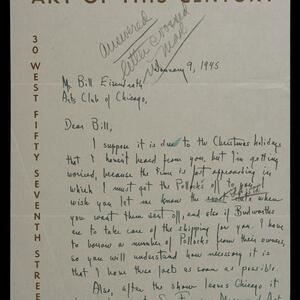 ART OF THIS CENTURY
30 WEST FIFTY SEVENTH STREE
answered
letter crossed
in mail
January 9, 1945
Mr Bill Eisendrath
Arts Club of Chicago,
Dear Bill,
I suppose it is due to the Christmas holidays
that I haven't heard from you, but I'm getting
worried, because the time is fast approaching in
which I must get the Pollocks off to you. I
wish you let me know the exact date when
you want them sent off, and also if Budworths
are to take care of the shipping for you. I have
to borrow a number of Pollocks from their owners,
so you will understand how necessary it is
that I have these facts as soon as possible.
Also, after the show leaves Chicago it